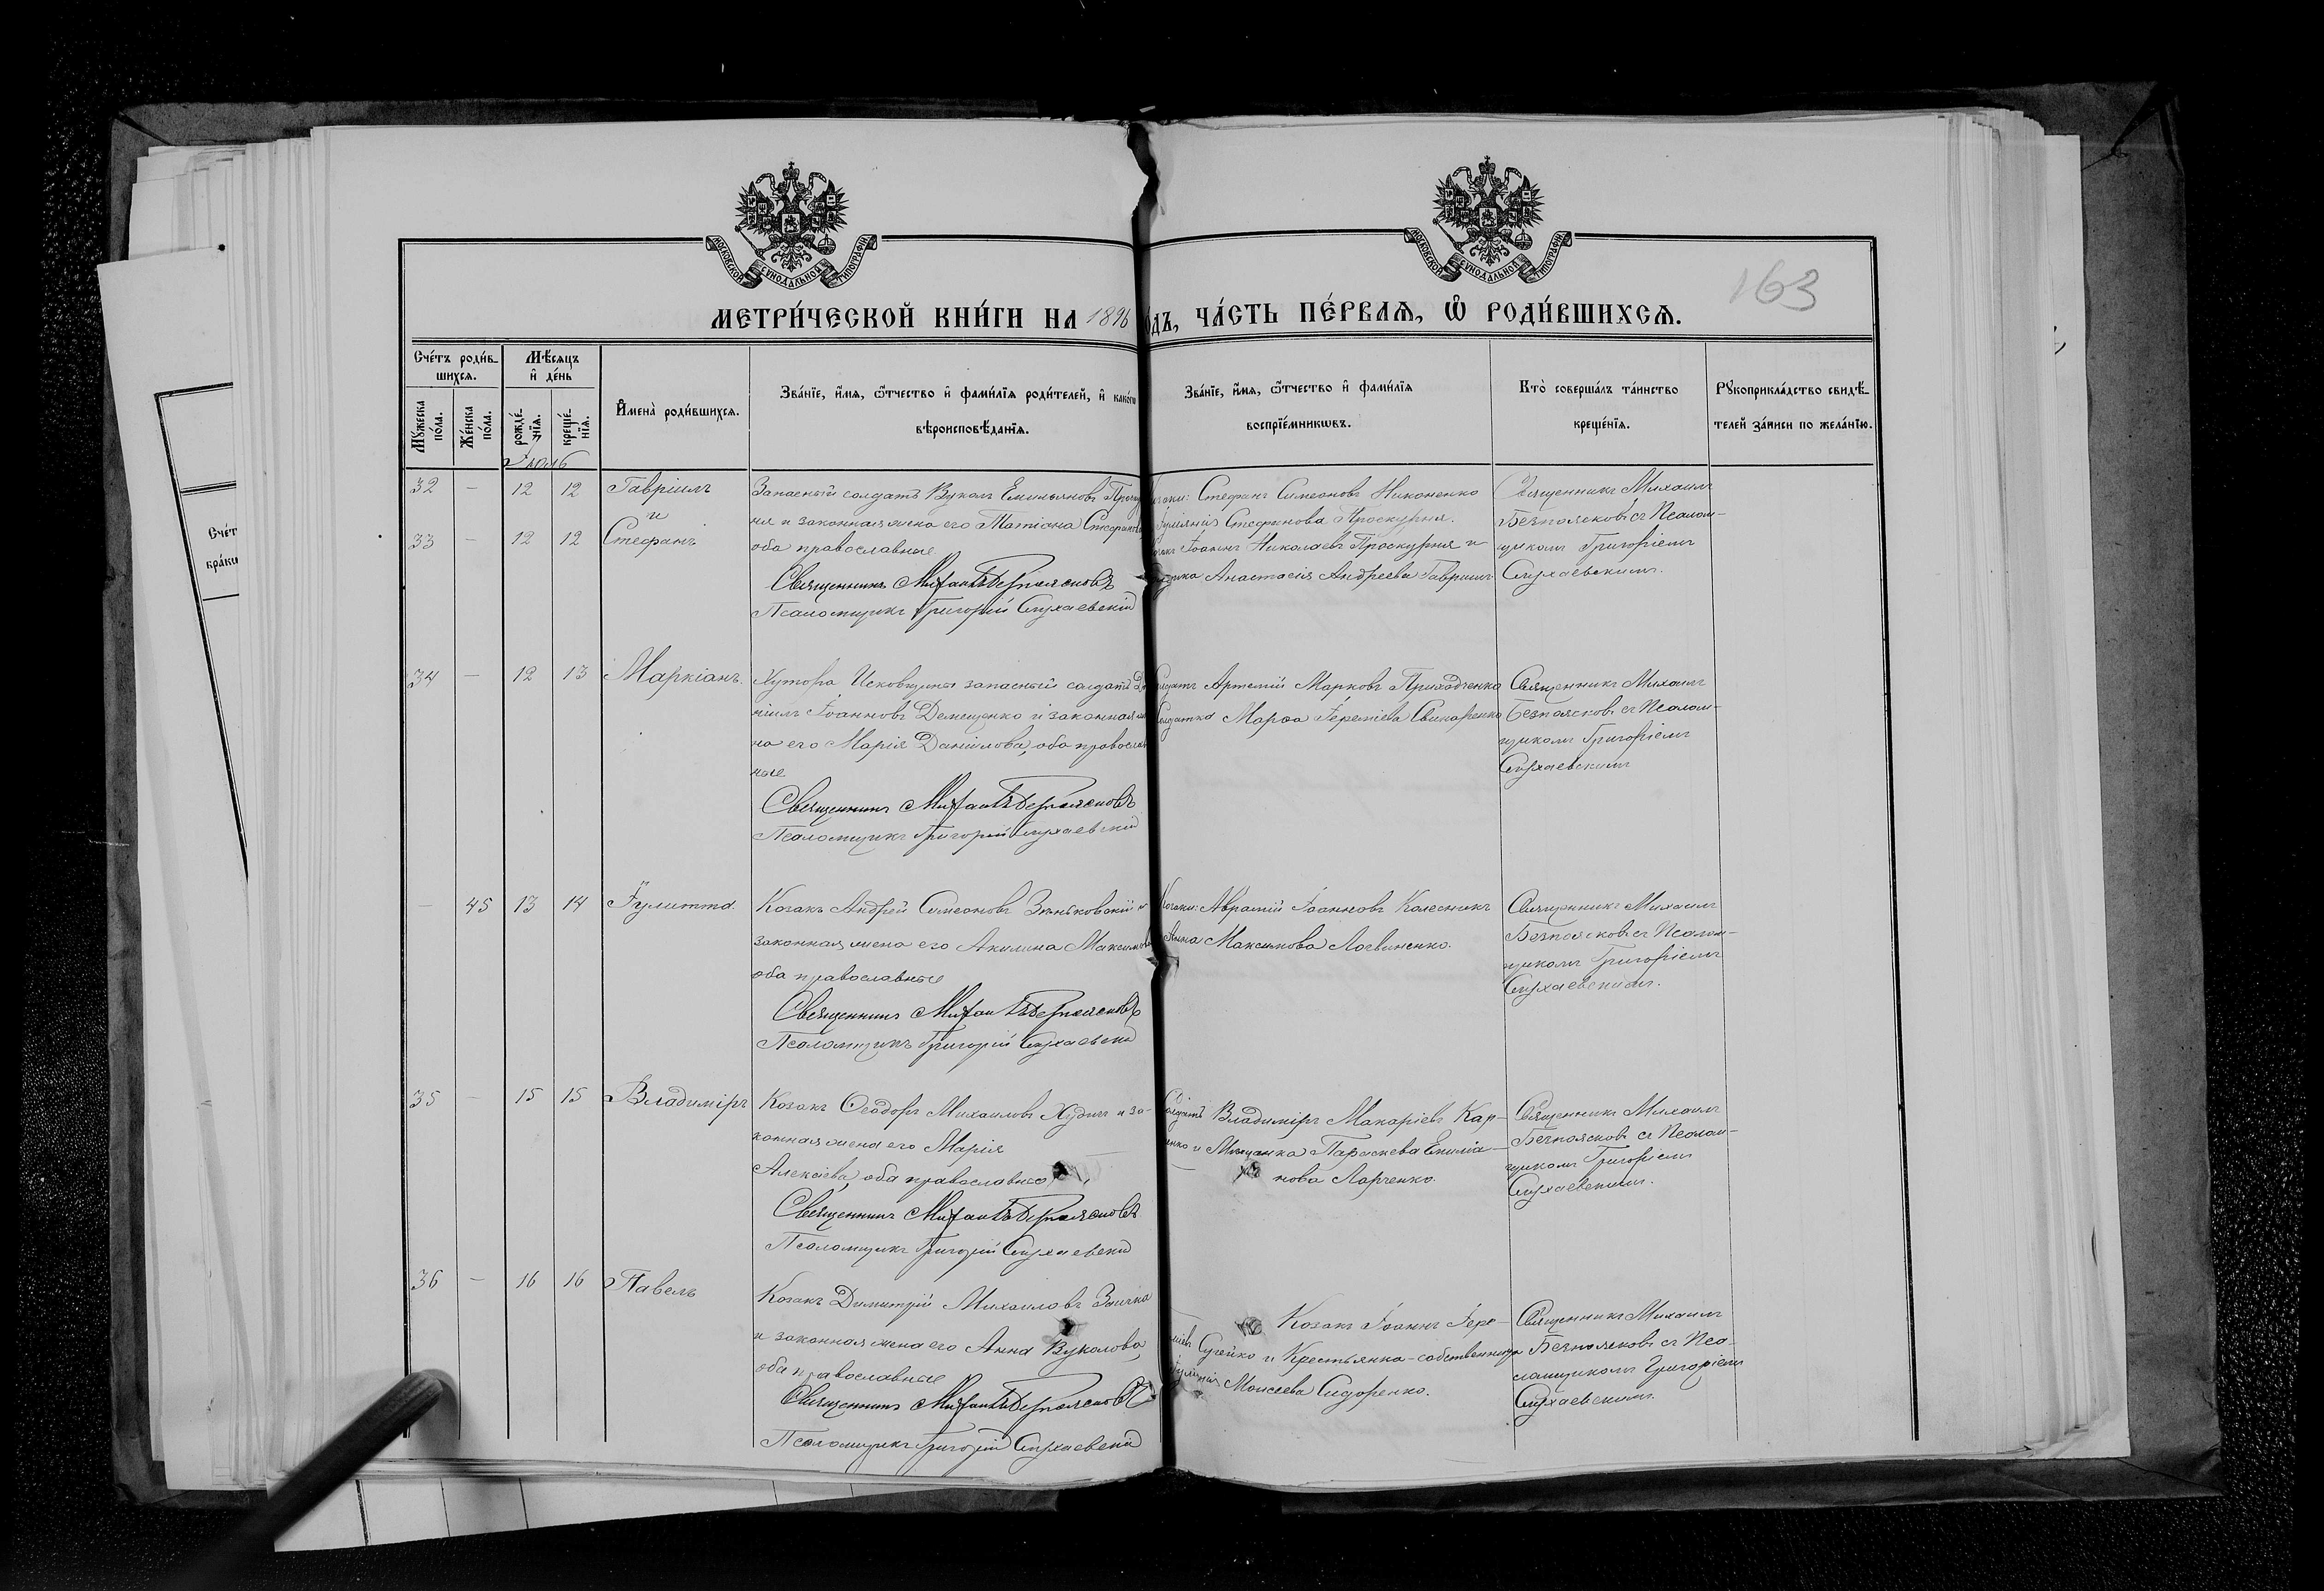 МОСКОВСКОЙ СѴНОДАЛЬНОЙ ТИПОГРАФІИ
МОСКОВСКОЙ СѴНОДАЛЬНОЙ ТИПОГРАФІИ
163
МЕТРИ́ЧЕСКОЙ КНИ́ГИ НА 1896
ОДЪ, ЧА́СТЬ ПЕ́РВАѦ, Ѽ РОДИ́ВШИХСѦ.
Сче́тъ роди́в-
шихсѧ.
Мꙋ́жеска по́ла.
Же́нска по́ла.
Мѣ́сѧцъ
и҆ де́нь
рожде́-
нїѧ.
креще́-
нїѧ.
И҆мена̀ роди́вшихсѧ.
Зва́нїе, и҆́мѧ, ѻ҆́тчество и҆ фами́лїѧ роди́телей, и҆ како́гѡ
вѣроисповѣ́данїѧ.
Зва́нїе, и҆́мѧ, ѻ҆́тчество и҆ фами́лїѧ
воспрїе́мникѡвъ.
Кто̀ соверша́лъ та́инство
креще́нїѧ.
Рꙋкоприкла́дство свидѣ́-
телей за́писи по жела́нїю.
Счет
браки
Іюль
32 — 12 12 Гавріилъ
и
33 — 12 12 Стефанъ
Запасный солдатъ Вуколъ Емильяновъ
ня и законная жена его Татіана Стефанова
оба православные
Священникъ Михаилъ Безпоясковъ
Псаломщикъ Григорій Слухаевскій
Стефанъ Симеоновъ Никоненко
Стефанова Проскурня.
Іоаннъ Николаевъ Проскурня и
Анастасія Андреева Гавришъ
Священникъ Михаилъ
Безпоясковъ съ Псалом-
щикомъ Григоріемъ
Слухаевскимъ.
34 — 12 13 Маркіанъ.
Хутора Исковщины запасный солдатъ
ніилъ Іоанновъ Демещенко и законная же
на его Марія Даніилова, оба православ
ные
Священникъ Михаилъ Безпоясковъ
Псаломщикъ Григорій Слухаевскій
Солдатъ Артемій Марковъ Приходченко
Солдатка Марѳа Іереміева Свинаренко
Священникъ Михаилъ
Безпоясковъ съ Псалом-
щикомъ Григоріемъ
Слухаевскимъ
— 45 13 14 Іулитта.
Козакъ Андрей Симеоновъ Зѣньковскій и
законная жена его Акилина Максимова
оба православные
Священникъ Михаилъ Безпоясковъ
Псаломщикъ Григорій Слухаевскій
Козаки: Аврамій Іоанновъ Колесникъ
Анна Максимова Логвиненко.
Священникъ Михаилъ
Безпоясковъ съ Псалом-
щикомъ Григоріемъ
Слухаевскимъ.
35 — 15 15 Владиміръ
Козакъ Ѳеодоръ Михаиловъ Худичъ и за-
конная жена его Марія
Алексіева, оба православные
Священникъ Михаилъ Безпоясковъ
Псаломщикъ Григорій Слухаевскій
Солдатъ Владиміръ Макаріевъ Кар-
енко и Мѣщанка Параскева Емилія-
нова Ларченко.
Священникъ Михаилъ
Безпоясковъ съ Псалом-
щикомъ Григоріемъ
Слухаевскимъ.
36 — 16 16 Павелъ
Козакъ Димитрій Михаиловъ Заичко
и законная жена его Анна Вуколова,
оба православные
Священникъ Михаилъ Безпоясковъ
Псаломщикъ Григорій Слухаевскій
Козакъ Іоаннъ Іере-
міевъ Сугейко и Крестьянка-собственница
Моисеева Сидоренко.
Священникъ Михаилъ
Безпоясковъ съ Пса-
ломщикомъ Григоріемъ
Слухаевскимъ.